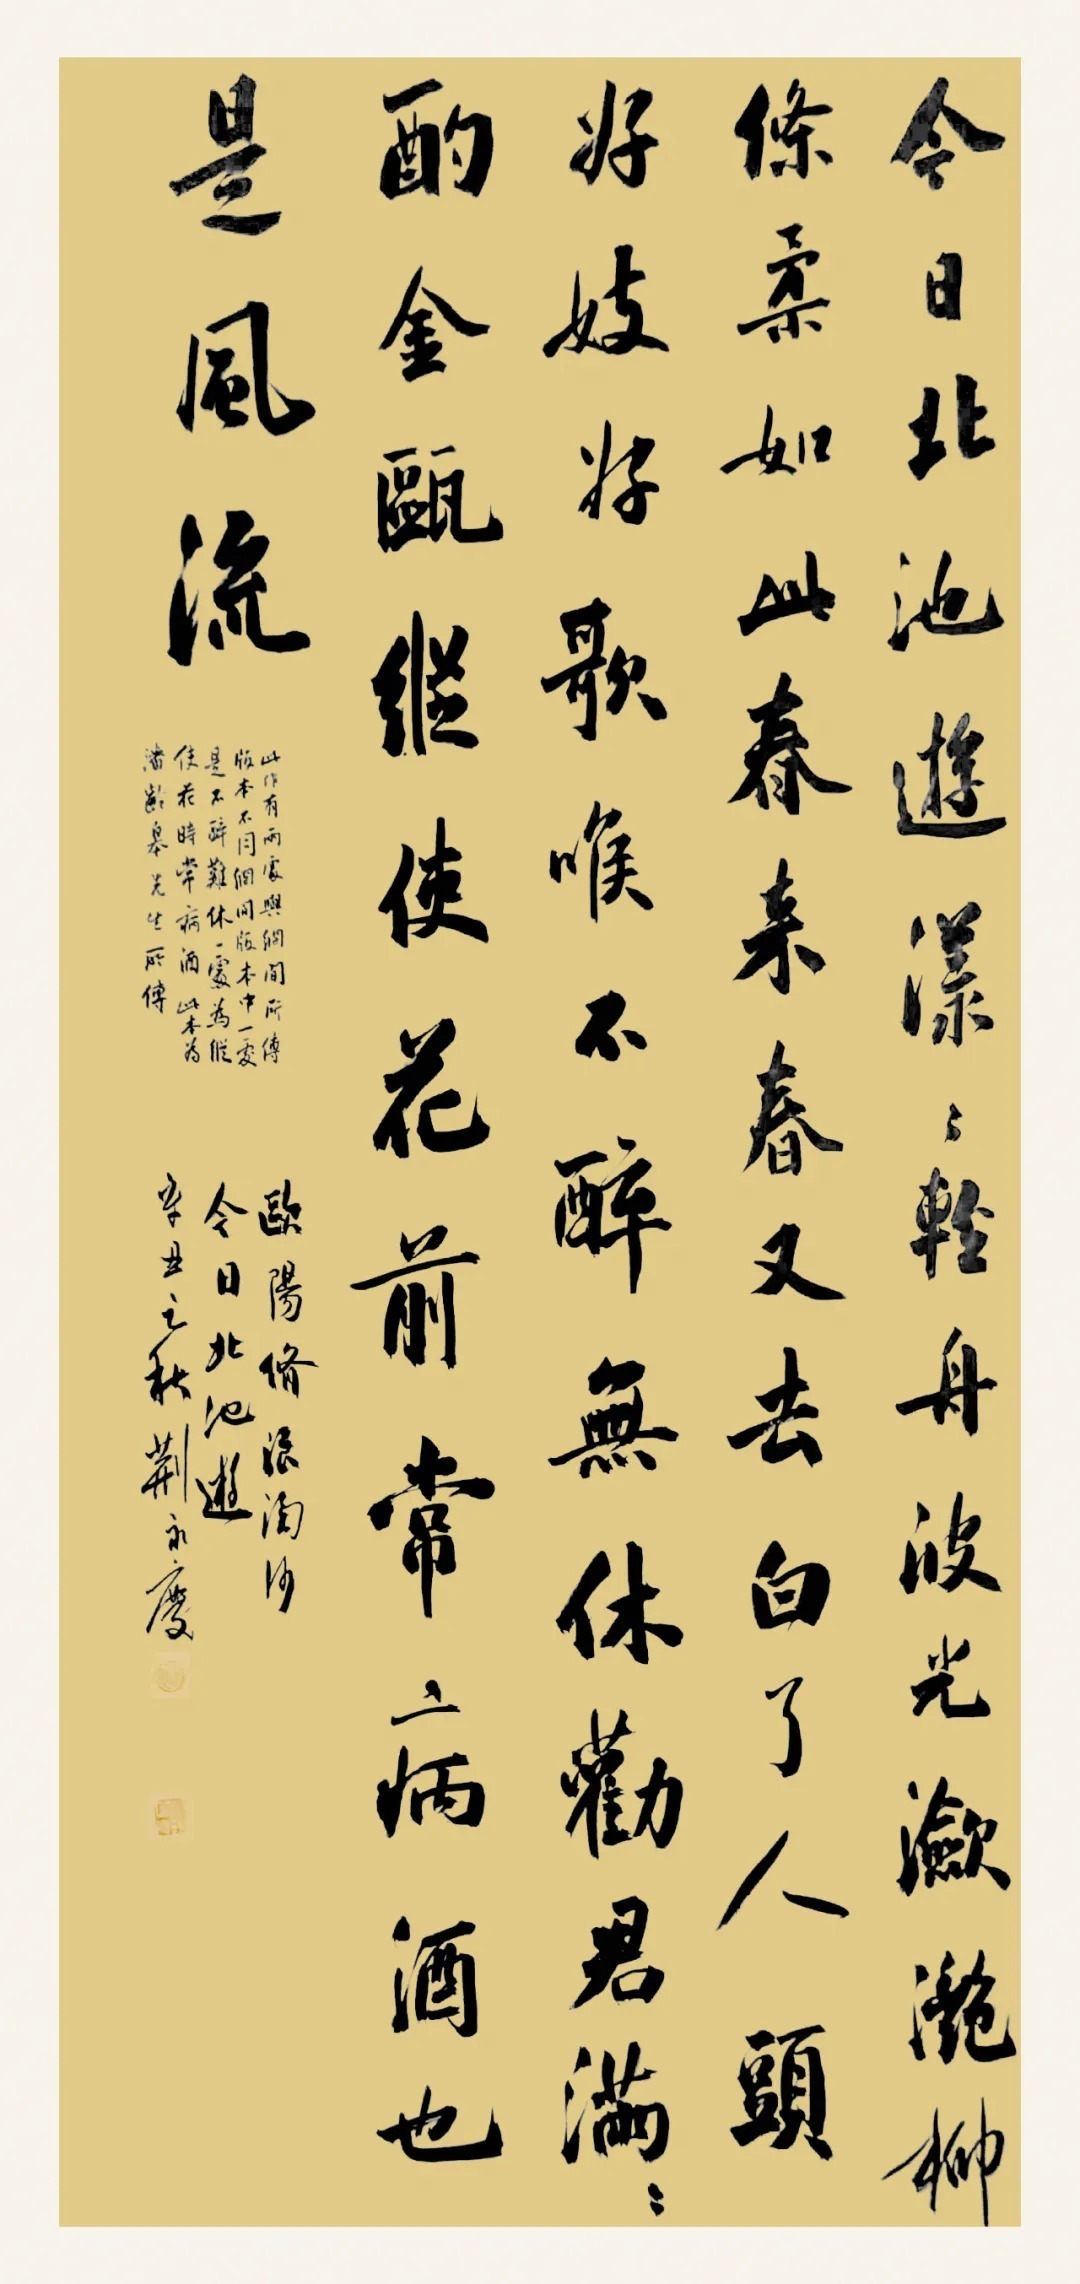 今日北池遊漾〻輕舟波光瀲灩柳
條柔如此春来春又去白了人頭
好妓好歌喉不醉無休勸君滿〻
酌金甌縱使花前常〻病酒也
是風流
此作有兩處與網間所傳
版本不同網間版本中一處
是不醉難休一處為縱
使花時常病酒此本為
潘齡皋先生所傳
歐陽脩浪淘沙
今日北池遊
辛丑之秋荆永慶